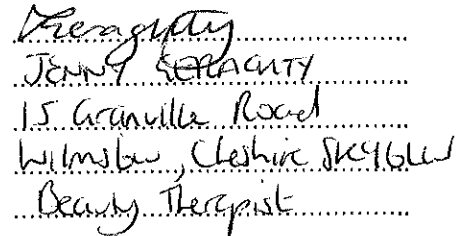 JENNY GERAGHTY
15 Granville Road
Wilmslow, Cheshire SK9 6LW
Beauty Therapist